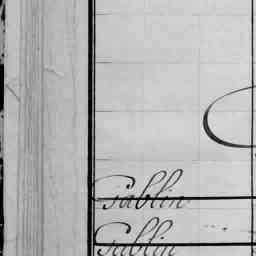 Gablin
Gablin